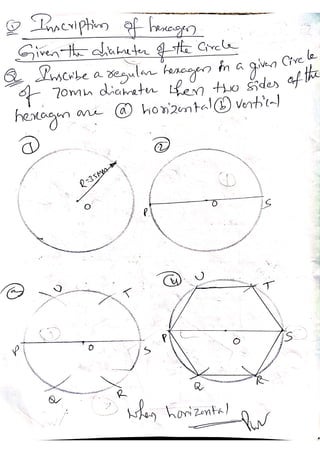 Inscription of hexagon
Given the diameter of the Circle
Q Inscribe a regular hexagon in a given Circle
of 70mm diameter when two sides of the
hexagon are (a) horizontal (b) vertical
1
R=35mm
O
2
P
O
S
3
U
T
P
O
S
Q
R
4
U
T
P
O
S
Q
R
when horizontal